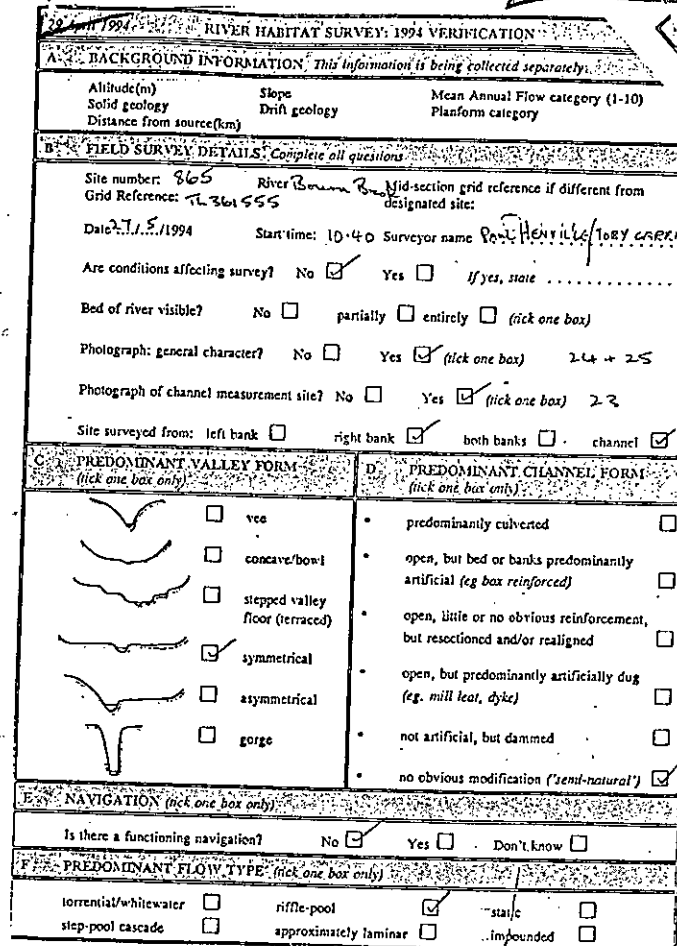 29 April 1994
RIVER HABITAT SURVEY: 1994 VERIFICATION
A BACKGROUND INFORMATION This information is being collected separately.
Altitude(m) Slope Mean Annual Flow category (1-10)
Solid geology Drift geology Planform category
Distance from source(km)
B FIELD SURVEY DETAILS Complete all questions
Site number: 865 River Mid-section grid reference if different from
Grid Reference: TL361555 designated site:
Date 27/5/1994 Start time: 10.40 Surveyor name PAUL HENVILLE/TOBY
Are conditions affecting survey? No ☑ Yes ☐ If yes, state ............
Bed of river visible? No ☐ partially ☐ entirely ☐ (tick one box)
Photograph: general character? No ☐ Yes ☑ (tick one box) 24 + 25
Photograph of channel measurement site? No ☐ Yes ☑ (tick one box) 23
Site surveyed from: left bank ☐ right bank ☑ both banks ☐ channel ☑
C PREDOMINANT VALLEY FORM
(tick one box only)
☐ vee
☐ concave/bowl
☐ stepped valley
floor (terraced)
☑ symmetrical
☐ asymmetrical
☐ gorge
D PREDOMINANT CHANNEL FORM
(tick one box only)
• predominantly culverted ☐
• open, but bed or banks predominantly
artificial (eg box reinforced) ☐
• open, little or no obvious reinforcement,
but resectioned and/or realigned ☐
• open, but predominantly artificially dug
(eg. mill leat, dyke) ☐
• not artificial, but dammed ☐
• no obvious modification ('semi-natural') ☑
E NAVIGATION (tick one box only)
Is there a functioning navigation? No ☑ Yes ☐ Don't know ☐
F PREDOMINANT FLOW TYPE (tick one box only)
torrential/whitewater ☐ riffle-pool ☑ static ☐
step-pool cascade ☐ approximately laminar ☐ impounded ☐